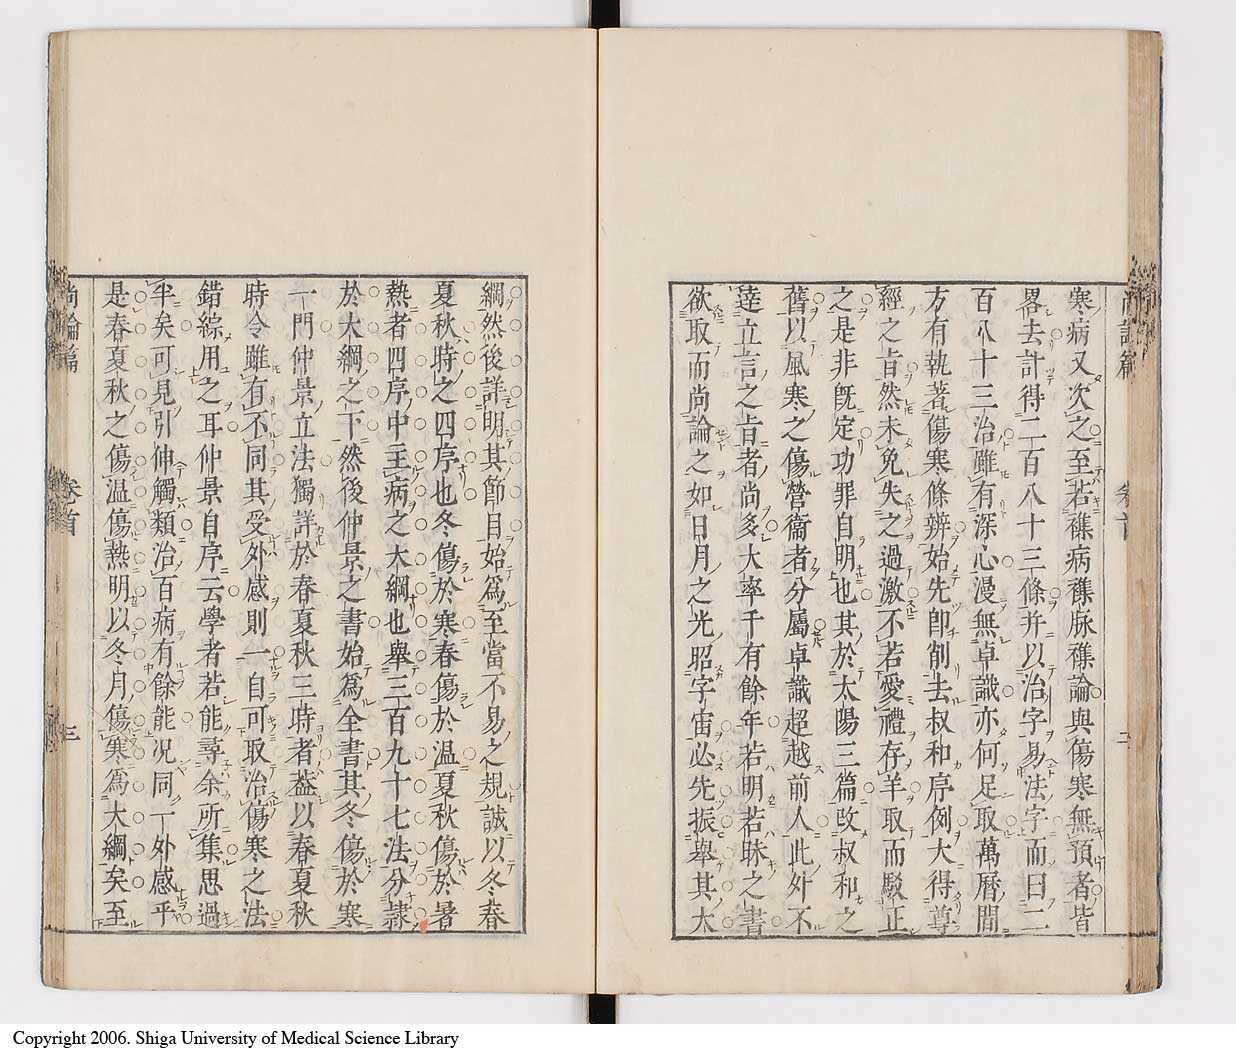 寒病又次之至若雜病雜脉雜論與傷寒無預者皆
畧去計得二百八十三條并以治字易法字而曰二
百八十三治雖有深心漫無卓識亦何足取萬曆間
方有執著傷寒條辨始先卽削去叔和序例大得尊
經之旨然未免失之過激不若愛禮存羊取而駁正
之是非旣定功罪自明也其於太陽三篇改叔和之
舊以風寒之傷營衛者分屬卓識超越前人此外不
達立言之旨者尚多大率千有餘年若明若昧之書
欲取而尚論之如日月之光昭宇宙必先振舉其大
綱然後詳明其節目始爲至當不易之規誠以冬春
夏秋時之四序也冬傷於寒春傷於温夏秋傷於暑
熱者四序中主病之大綱也舉三百九十七法分隸
於大綱之下然後仲景之書始爲全書其冬傷於寒
一門仲景立法獨詳於春夏秋三時者葢以春夏秋
時令雖有不同其受外感則一自可取治傷寒之法
錯綜用之耳仲景自序云學者若能尋余所集思過
半矣可見引伸觸類治百病有餘能况同一外感乎
是春夏秋之傷温傷熱明以冬月傷寒爲大綱矣至
尚論篇
卷首
三
Copyright 2006. Shiga University of Medical Science Library